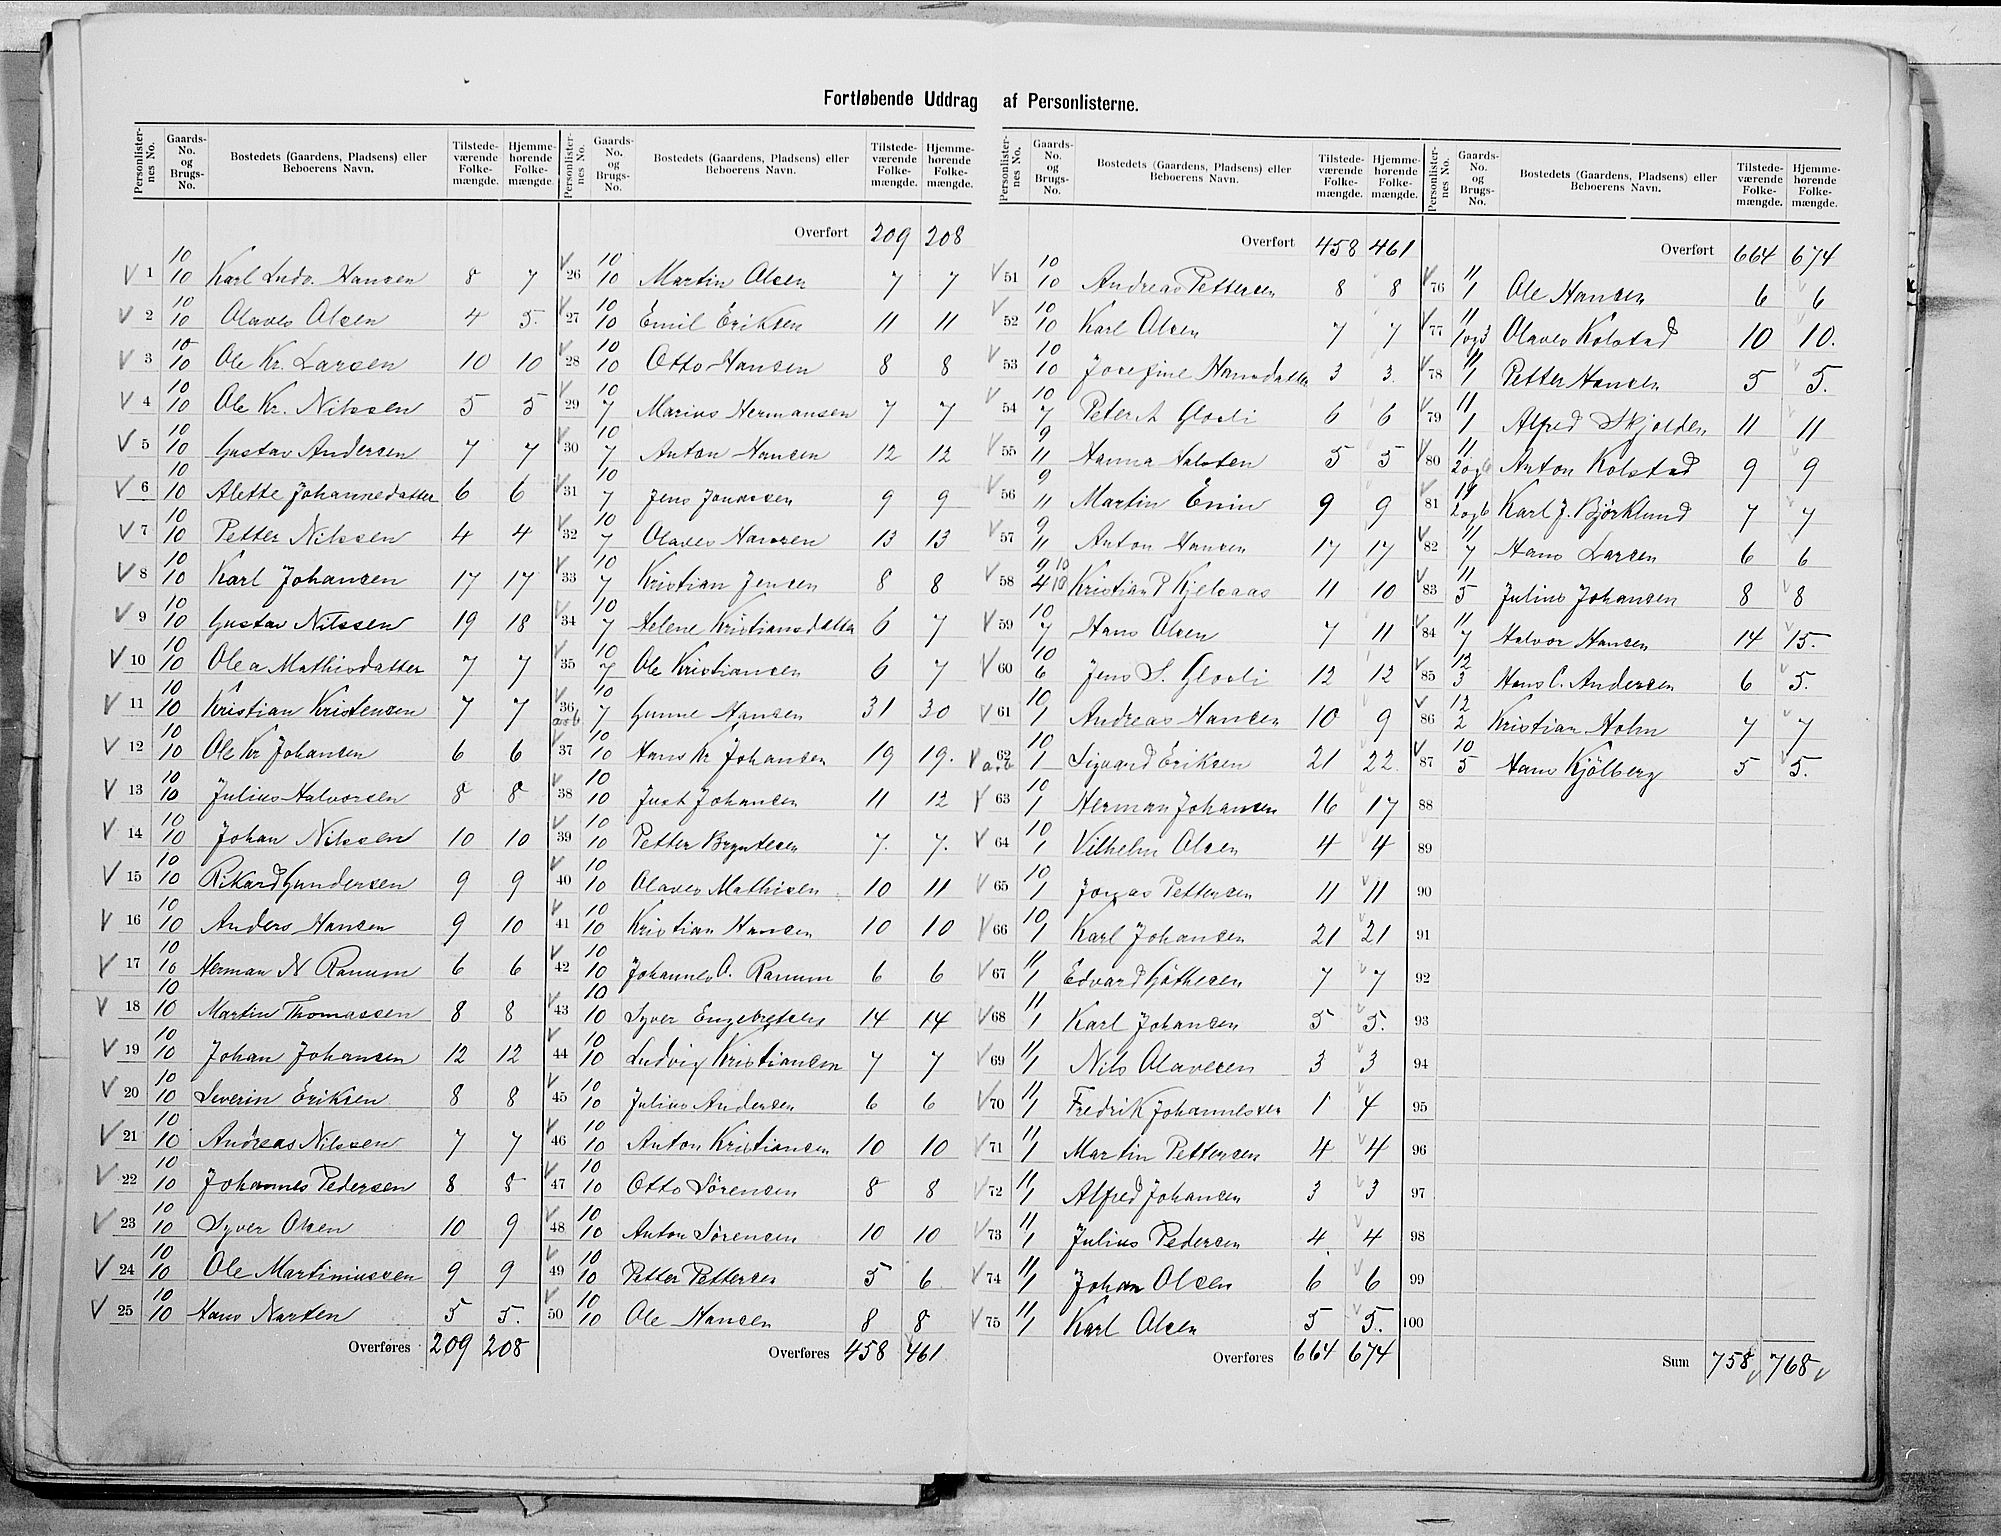 Fortløbende Uddrag af Personlisterne.
Personlisternes No. | Gaards-No. og Brugs-No. | Bostedets (Gaardens, Pladsens) eller Beboerens Navn. | Tilstedeværende Folkemængde. | Hjemmehørende Folkemængde.
V 1 10/10 Karl Ludv. Hansen 8 7
V 2 10/10 Olaves Olsen 4 5.
V 3 10/10 Ole Kr. Larsen 10 10
V 4 10/10 Ole Kr. Nilssen 5 5
V 5 10/10 Gustav Andersen 7 7
V 6 10/10 Alette Johannedatter 6 6
V 7 10/10 Petter Nilssen 4 4
V 8 10/10 Karl Johansen 17 17
V 9 10/10 Gustav Nilssen 19 18
V 10 10/10 Olea Mathisdatter 7 7
V 11 10/10 Kristian Kristensen 7 7
V 12 10/10 Ole Kr Johansen 6 6
V 13 10/10 Julius Halvorsen 8 8
V 14 10/10 Johan Nilssen 10 10
V 15 10/10 Rikard Gundersen 9 9
V 16 10/10 Anders Hansen 9 10
V 17 10/10 Herman N Ranum 6 6
V 18 10/10 Martin Thomassen 8 8
V 19 10/10 Johan Johansen 12 12
V 20 10/10 Severin Eriksen 8 8
V 21 10/10 Andreas Nilssen 7 7
V 22 10/10 Johannes Pedersen 8 8
V 23 10/10 Syver Olsen 10 9
V 24 10/10 Ole Martiniussen 9 9
V 25 10/10 Hans Narten 5 5.
Overføres 209 208
Personlisternes No. | Gaards-No. og Brugs-No. | Bostedets (Gaardens, Pladsens) eller Beboerens Navn. | Tilstedeværende Folkemængde. | Hjemmehørende Folkemængde.
Overført 209 208
V 26 10/10 Martin Olsen 7 7
V 27 10/10 Emil Eriksen 11 11
V 28 10/10 Otto Hansen 8 8
V 29 10/7 Marius Hermansen 7 7
V 30 10/7 Anton Hansen 12 12
V 31 10/7 Jens Jonassen 9 9
V 32 10/7 Olaves Hansen 13 13
V 33 10/7 Kristian Jensen 8 8
V 34 10/7 Helene Kristiansdatter 6 7
V 35 10/7 Ole Kristiansen 6 7
V 36 aob 10/7 Gunne Hansen 31 30
V 37 10/10 Hans Kr Johansen 19 19.
V 38 10/10 Just Johansen 11 12
V 39 10/10 Petter Bryntesen 7. 7.
V 40 10/10 Olaves Mathisen 10 11
V 41 10/10 Kristian Hansen 10 10
V 42 10/10 Johannes O. Ranum 6 6
V 43 10/10 Syver Engebretsen 14 14
V 44 10/10 Ludvig Kristiansen 7 7
V 45 10/10 Julius Andersen 6 6
V 46 10/10 Anton Kristiansen 10 10
V 47 10/10 Otto Sørensen 8 8
V 48 10/10 Anton Sørensen 10 10
V 49 10/10 Petter Pettersen 5 6
V 50 10/10 Ole Hansen 8 8
Overføres 458 461
Personlisternes No. | Gaards-No. og Brugs-No. | Bostedets (Gaardens, Pladsens) eller Beboerens Navn. | Tilstedeværende Folkemængde. | Hjemmehørende Folkemængde.
Overført 458 461
V 51 10/10 Andreas Pettersen 8 8
V 52 10/10 Karl Olsen 7 7
V 53 10/10 Josefine Hansdatter 3 3.
V 54 10/7 Peter A Glosli 6 6
V 55 9/11 Hanna Halsten 5 5
V 56 9/11 Martin 9 9
V 57 9/11 Anton Hansen 17 17
V 58 9/4 10/10 Kristian P Kjelsaas 11 10
V 59 10/7 Hans Olsen 7 11
V 60 10/6 Jens S. Glosli 12 12
V 61 10/1 Andreas Hansen 10 9
V 62 a.b 10/1 Sigvard Eriksen 21 22
V 63 10/1 Herman Johansen 16 17
V 64 10/1 Vilhelm Olsen 4 4
V 65 10/1 Jonas Pettersen 11 11
V 66 10/1 Karl Johansen 21 21
V 67 11/1 Edvard Gøthesen 7 7
V 68 11/1 Karl Johansen 5 5.
V 69 11/1 Nils Olavesen 3 3
V 70 11/1 Fredrik Johannessen 1 4
V 71 11/1 Martin Pettersen 4 4
V 72 11/1 Alfred Johansen 3 3
V 73 11/1 Julius Pedersen 4 4
V 74 11/1 Johan Olsen 6 6
V 75 11/1 Karl Olsen 5 5.
Overføres 664 674
Personlisternes No. | Gaards-No. og Brugs-No. | Bostedets (Gaardens, Pladsens) eller Beboerens Navn. | Tilstedeværende Folkemængde. | Hjemmehørende Folkemængde.
Overført 664 674
V 76 11/1 Ole Hansen 6 6
V 77 11/1og3 Olaves Kolstad 10 10.
V 78 11/1 Petter Hansen 5 5.
V 79 11/1 Alfred Skjolden 11 11
V 80 11/2og6 Anton Kolstad 9 9
V 81 11/2og6 Karl J. Björklund 7 7
V 82 11/7 Hans Larsen 6 6
V 83 11/5 Julius Johansen 8 8
V 84 11/7 Halvor Hansen 14 15.
V 85 12/3 Hans C. Andersen 6 5.
V 86 12/2 Kristian Holm 7 7
V 87 10/5 Hans Kjölberg 5 5.
88
89
90
91
92
93
94
95
96
97
98
99
100
Sum 758 768